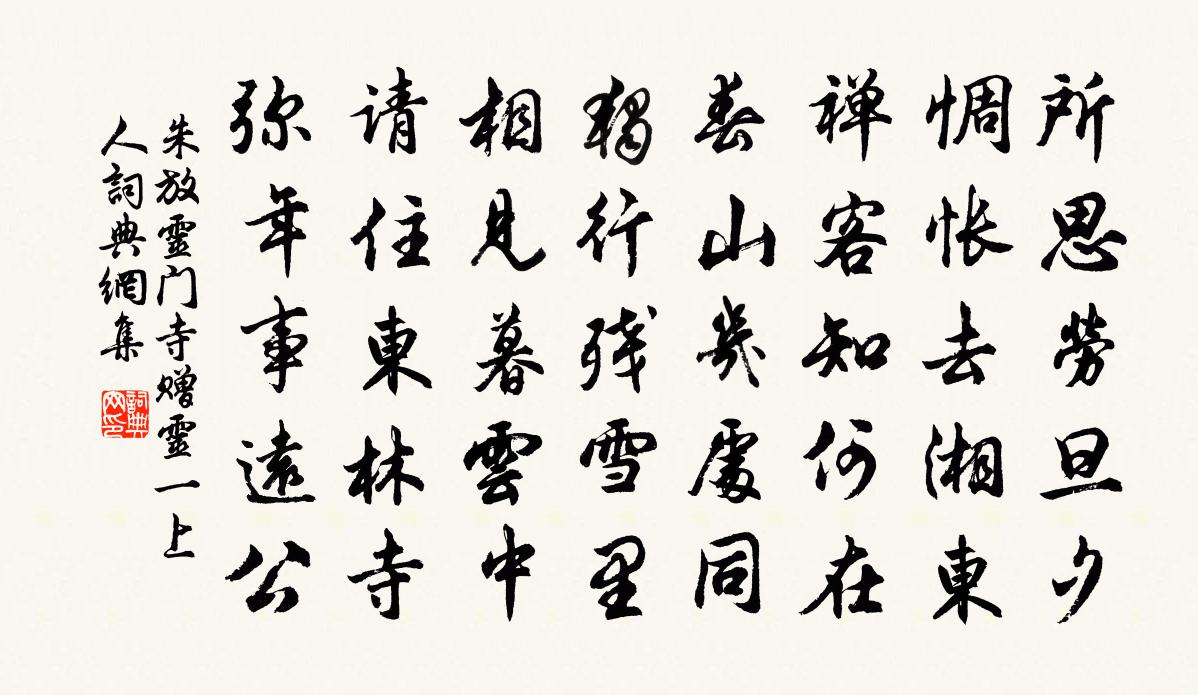 所思勞旦夕
惆怅去湘東
禅客知何在
春山幾處同
獨行残雪里
相見暮雲中
请住東林寺
弥年事遠公
朱放靈门寺赠靈一上
人詞典網集
詞典网印